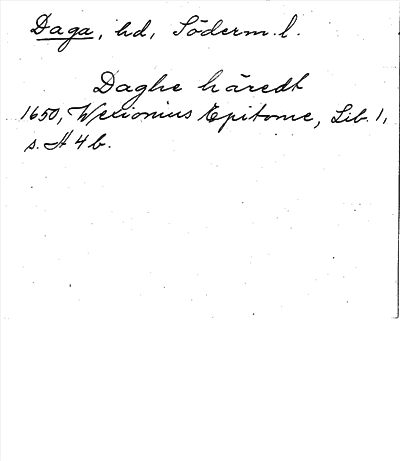 Daga, hd, Söderm. l.
Daghe häredt
1650, Wexionius Epitome, Lib. 1,
s. A 4 b.